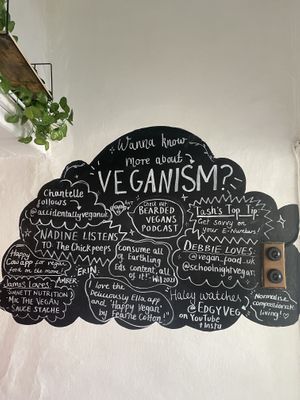 Wanna know
more about
VEGANISM?
Chantelle
follows
@accidentallyveganuk
Check out
BEARDED
VEGANS
PODCAST
Tash's Top Tip
Get savvy on
your E-Numbers!
NADINE LISTENS
TO The Chickpeeps
Consume all
of Earthling
Eds content, all
of it!
DEBBIE LOVES
@vegan_food_
@schoolnightvegan
Happy
Cow app for vegan
food on the move
ERIN
James Loves:
SIMNETT NUTRITION
MIC THE VEGAN
SAUCE STACHE
I love the
Deliciously Ella app
and 'Happy Vegan'
by Fearne Cotton!
Haley watches
@EDGYVEG
on YouTube
+ Insta
Normalise
compassionate
living!